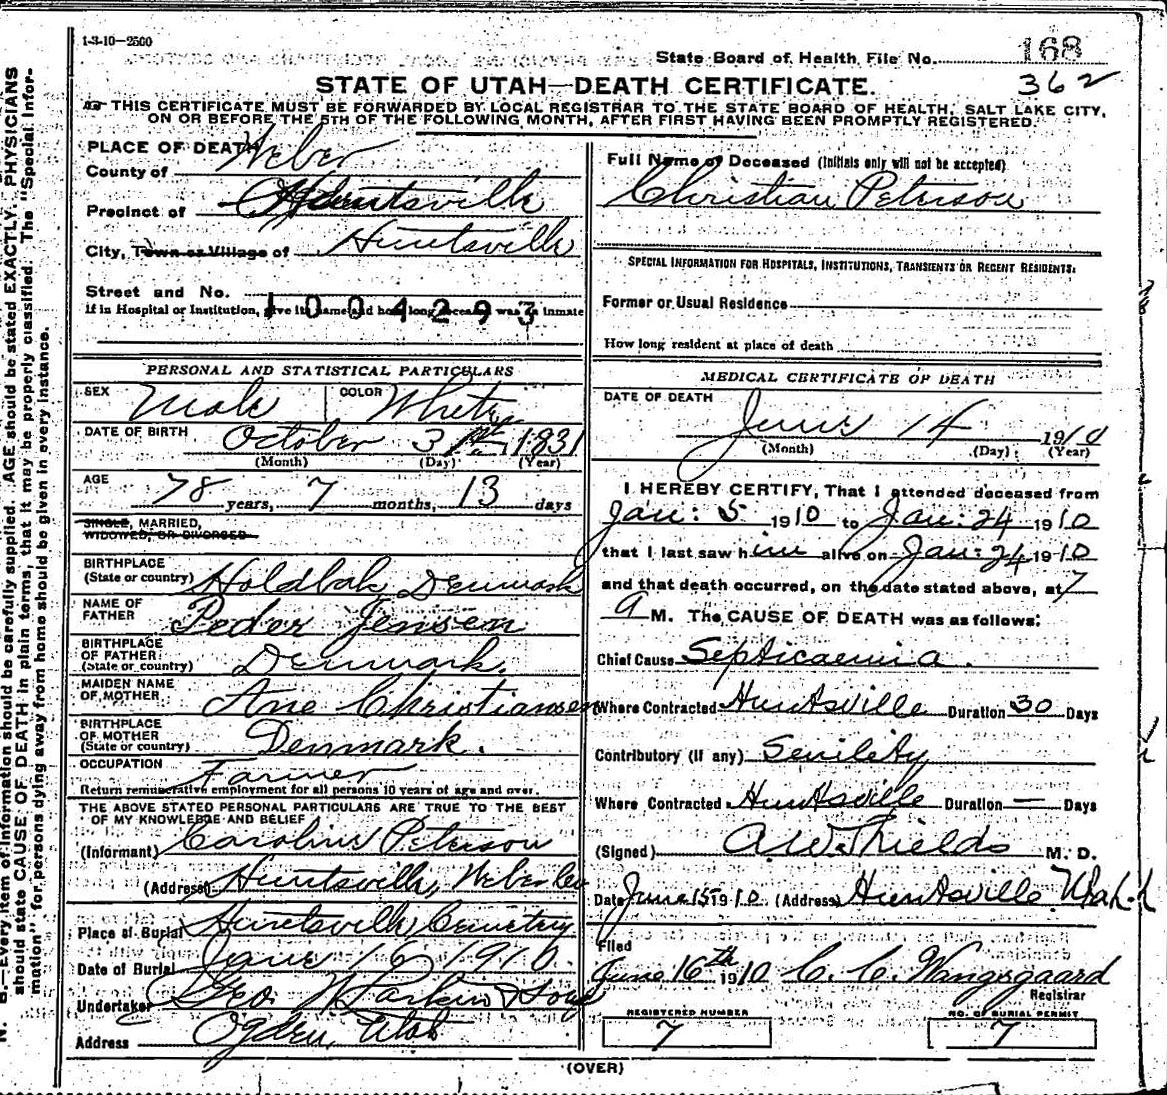 1-3-10-2500
State Board of Health File No. 168
362
STATE OF UTAH—DEATH CERTIFICATE.
THIS CERTIFICATE MUST BE FORWARDED BY LOCAL REGISTRAR TO THE STATE BOARD OF HEALTH, SALT LAKE CITY,
ON OR BEFORE THE 5TH OF THE FOLLOWING MONTH, AFTER FIRST HAVING BEEN PROMPTLY REGISTERED.
PLACE OF DEATH
County of Weber
Precinct of Huntsville
City, Town or Village of Huntsville
Street and No.
If in Hospital or Institution, give its name and how long deceased was an inmate
1004293
PERSONAL AND STATISTICAL PARTICULARS
SEX Male COLOR White
DATE OF BIRTH October 31st 1831
(Month) (Day) (Year)
AGE 78 years, 7 months, 13 days
SINGLE, MARRIED,
WIDOWED, OR DIVORCED
BIRTHPLACE
(State or country) Holdbak Denmark
NAME OF
FATHER Peder Jensen
BIRTHPLACE
OF FATHER
(State or country) Denmark.
MAIDEN NAME
OF MOTHER Ane Christiansen
BIRTHPLACE
OF MOTHER
(State or country) Denmark.
OCCUPATION Farmer
Return remunerative employment for all persons 10 years of age and over.
THE ABOVE STATED PERSONAL PARTICULARS ARE TRUE TO THE BEST
OF MY KNOWLEDGE AND BELIEF
(Informant) Caroline Peterson
(Address) Huntsville, Weber Co
Place of Burial Huntsville Cemetery
Date of Burial June 16 1910.
Undertaker Geo W Larkin & Sons
Address Ogden, Utah
Full Name of Deceased (Initials only will not be accepted)
Christian Peterson
SPECIAL INFORMATION FOR HOSPITALS, INSTITUTIONS, TRANSIENTS OR RECENT RESIDENTS.
Former or Usual Residence
How long resident at place of death
MEDICAL CERTIFICATE OF DEATH
DATE OF DEATH
June 14 1910
(Month) (Day) (Year)
I HEREBY CERTIFY, That I attended deceased from
Jan: 5 1910 to Jan: 24 1910
that I last saw him alive on Jan: 24 1910
and that death occurred, on the date stated above, at 7
a M. The CAUSE OF DEATH was as follows:
Chief Cause Septicaemia.
Where Contracted Huntsville Duration 30 Days
Contributory (if any) Senility
Where Contracted Huntsville Duration — Days
(Signed) A. W. Shields M. D.
Date June 15 1910. (Address) Huntsville Utah.
Filed
June 16th 1910 C. C. Wangsgaard
Registrar
REGISTERED NUMBER
7
NO. OF BURIAL PERMIT
7
(OVER)
N. B.—Every item of information should be carefully supplied. AGE should be stated EXACTLY. PHYSICIANS
should state CAUSE OF DEATH in plain terms, that it may be properly classified. The "Special Infor-
mation" for persons dying away from home should be given in every instance.